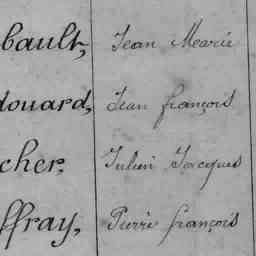 bault, Jean Marie
douard, Jean françois
cher, Julien Jacques
ffray, Pierre françois